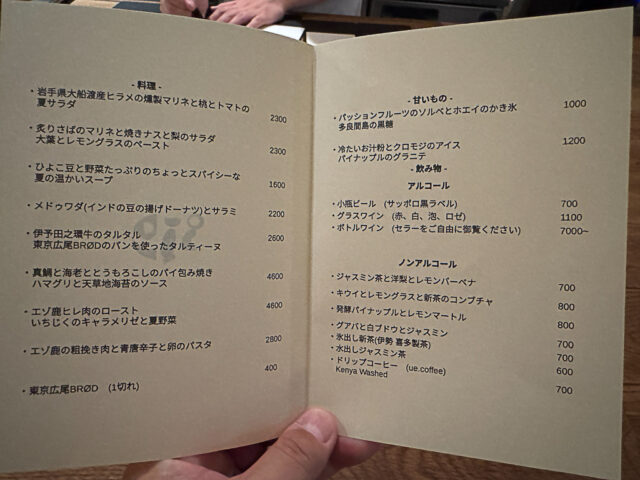 - 料理 -
・岩手県大船渡産ヒラメの燻製マリネと桃とトマトの
夏サラダ
2300
・炙りさばのマリネと焼きナスと梨のサラダ
大葉とレモングラスのペースト
2300
・ひよこ豆と野菜たっぷりのちょっとスパイシーな
夏の温かいスープ
1600
・メドゥワダ(インドの豆の揚げドーナツ)とサラミ
2200
・伊予田之環牛のタルタル
東京広尾BRØDのパンを使ったタルティーヌ
2600
・真鯛と海老ととうもろこしのパイ包み焼き
ハマグリと天草地海苔のソース
4600
・エゾ鹿ヒレ肉のロースト
いちじくのキャラメリゼと夏野菜
4600
・エゾ鹿の粗挽き肉と青唐辛子と卵のパスタ
2800
400
・東京広尾BRØD (1切れ)
- 甘いもの -
・パッションフルーツのソルベとホエイのかき氷
多良間島の黒糖
1000
・冷たいお汁粉とクロモジのアイス
パイナップルのグラニテ
1200
- 飲み物 -
アルコール
・小瓶ビール (サッポロ黒ラベル) 700
・グラスワイン (赤、白、泡、ロゼ) 1100
・ボトルワイン (セラーをご自由に御覧ください) 7000~
ノンアルコール
・ジャスミン茶と洋梨とレモンバーベナ 700
・キウイとレモングラスと新茶のコンブチャ 800
・発酵パイナップルとレモンマートル 800
・グアバと白ブドウとジャスミン 700
・氷出し新茶(伊勢 喜多製茶) 700
・水出しジャスミン茶 600
・ドリップコーヒー (ue.coffee)
Kenya Washed 700